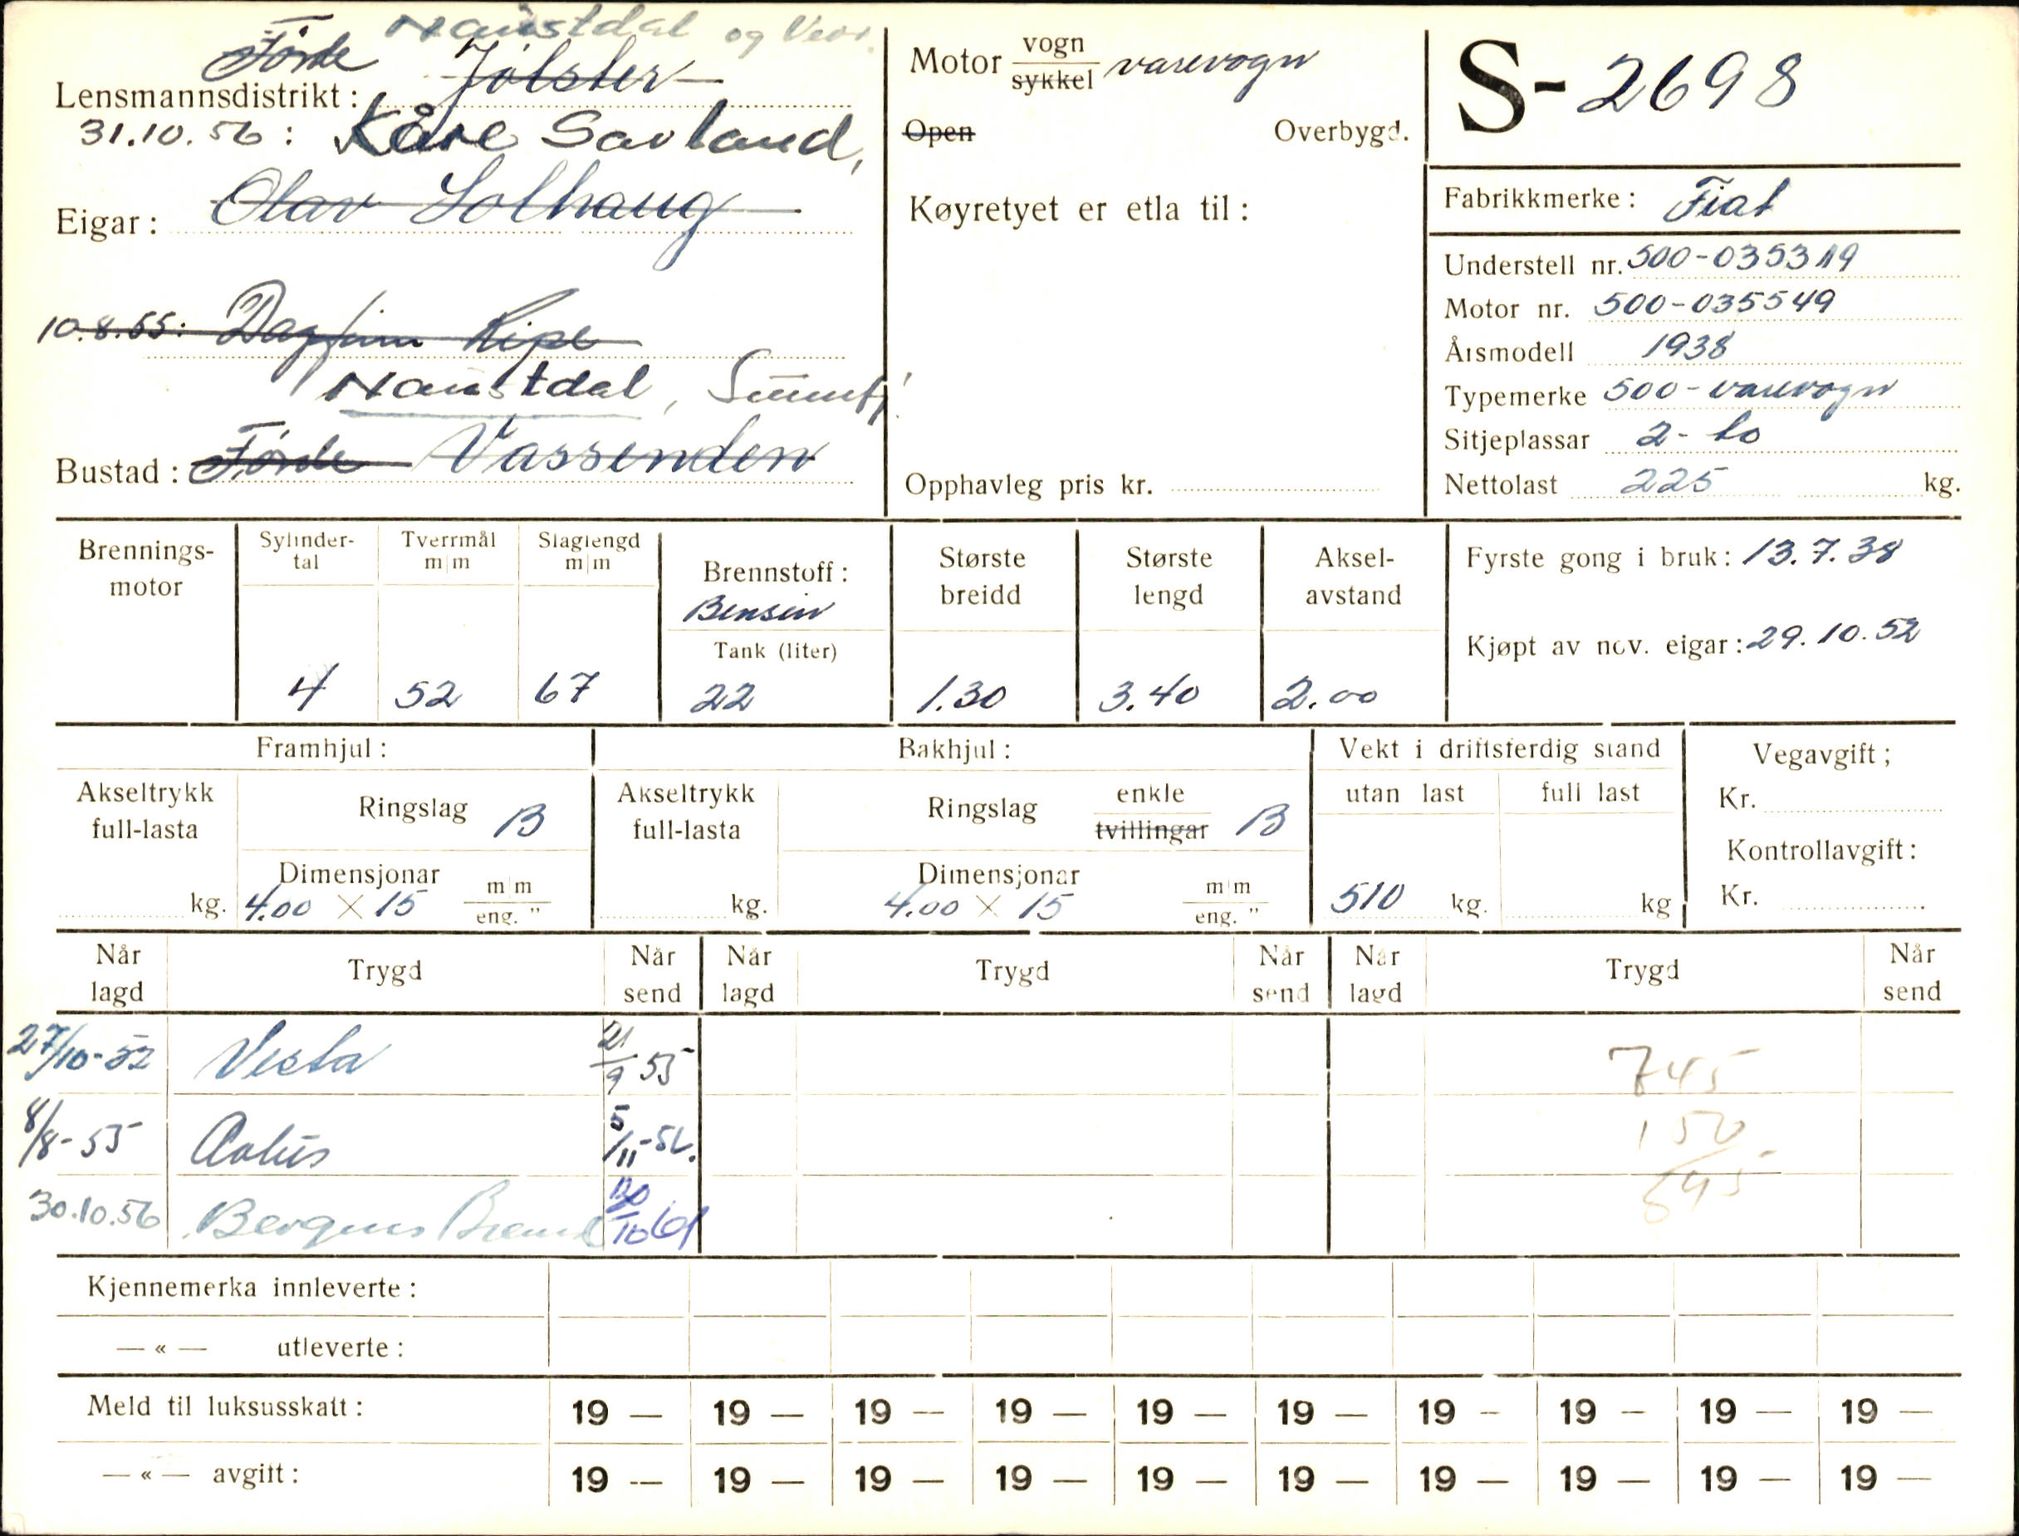 Naustdal og Vevr.
Førde Jølster
Lensmannsdistrikt:
31.10.56: Kåre Savland,
Eigar: Olav Solhaug
10.8.55: Dagfinn Ripe
Naustdal, Sunnfj.
Bustad: Førde Vassenden
Motor vogn
sykkel varevogn
Open Overbygd.
Køyretyet er etla til:
Opphavleg pris kr.
S-2698
Fabrikkmerke: Fiat
Understell nr. 500-035319
Motor nr. 500-035549
Årsmodell 1938
Typemerke 500-varevogn
Sitjeplassar 2-to
Nettolast 225 kg.
Brennings-
motor
Sylinder-
tal
4
Tverrmål
m/m
52
Slaglengd
m/m
67
Brennstoff:
Bensin
Tank (liter)
22
Største
breidd
1.30
Største
lengd
3.40
Aksel-
avstand
2.00
Fyrste gong i bruk: 13.7.38
Kjøpt av nov. eigar: 29.10.52
Framhjul:
Akseltrykk
full-lasta
kg.
Ringslag B
Dimensjonar
4.00 × 15 m/m
eng. "
Bakhjul:
Akseltrykk
full-lasta
kg.
Ringslag enkle
tvillingar B
Dimensjonar
4.00 × 15 m/m
eng. "
Vekt i driftsferdig stand
utan last full last
510 kg. kg
Vegavgift;
Kr.
Kontrollavgift:
Kr.
Når
lagd Trygd Når
send Når
lagd Trygd Når
send Når
lagd Trygd Når
send
27/10-52 Vesta 21/9 55 745
8/8-55 5/11-56. 150
30.10.56 Bergens Brann 10 61 595
Kjennemerka innleverte:
— « — utleverte:
Meld til luksusskatt: 19 — 19 — 19 — 19 — 19 — 19 — 19 - 19 — 19 — 19 —
— « — avgift: 19 — 19 — 19 — 19 — 19 — 19 — 19 — 19 — 19 — 19 —